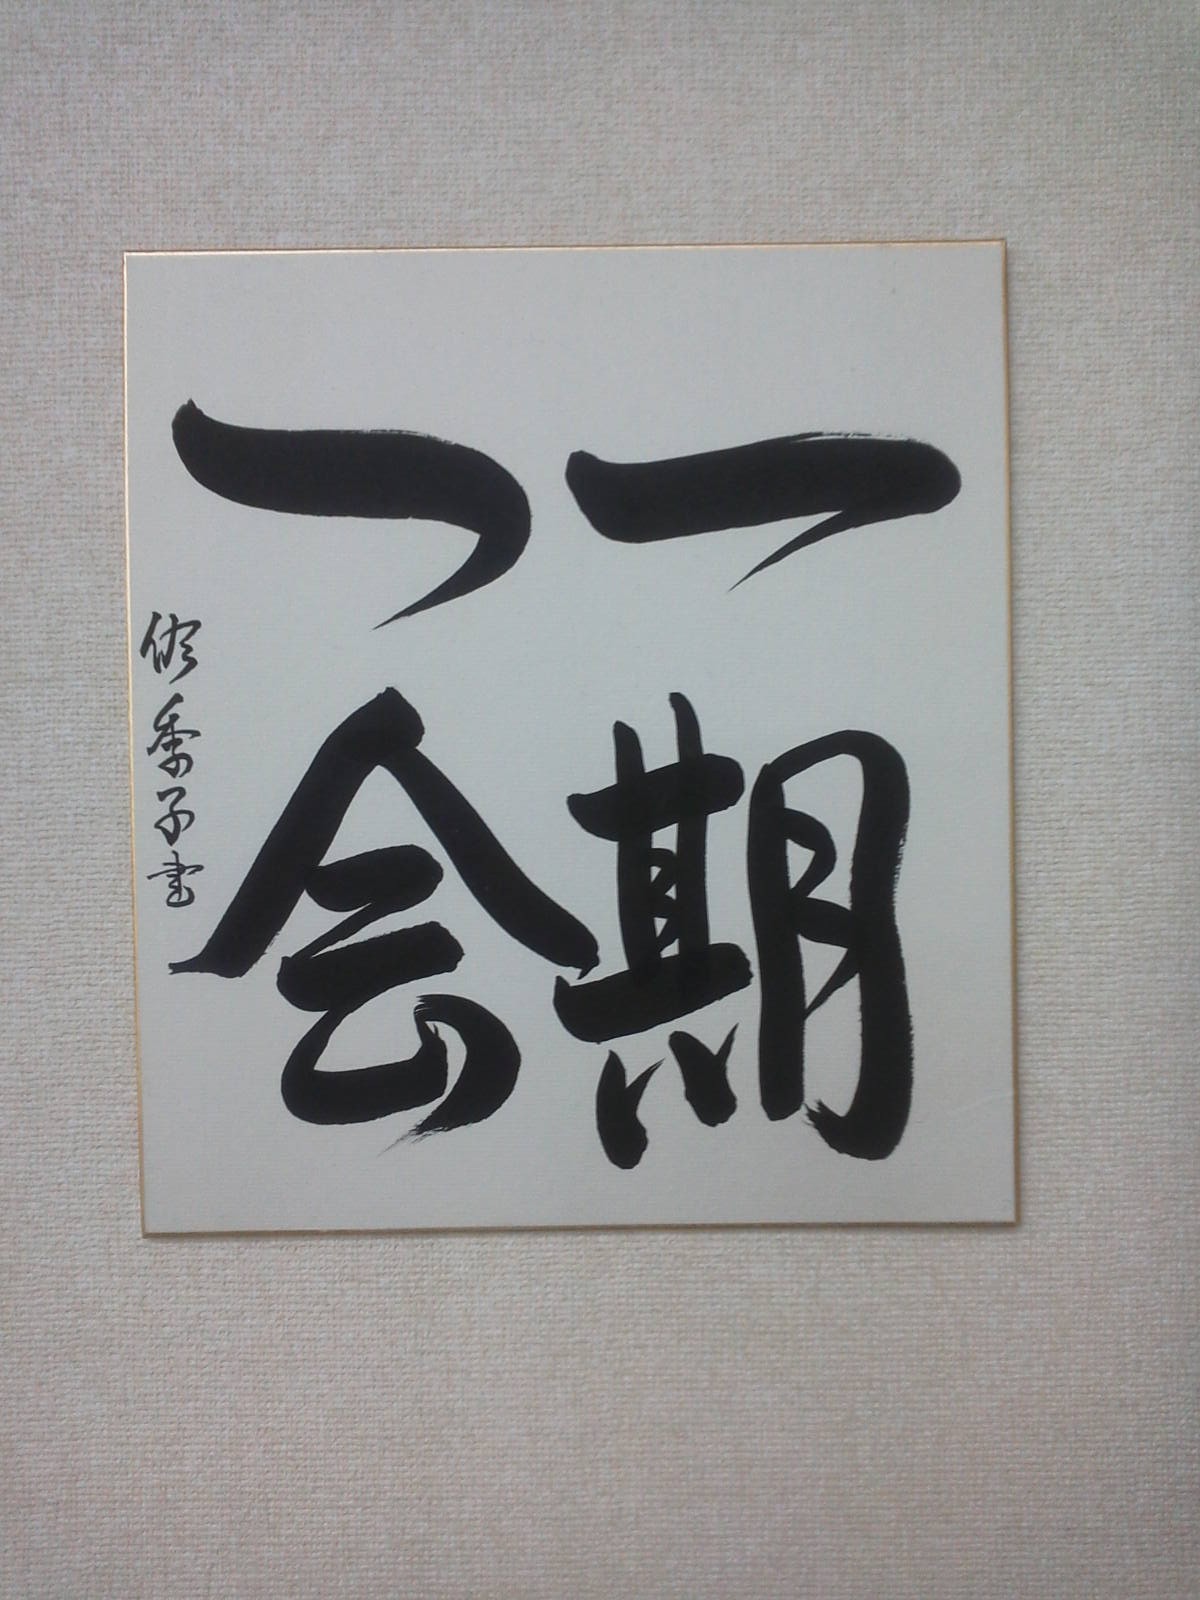 一期
一会
悠季子書